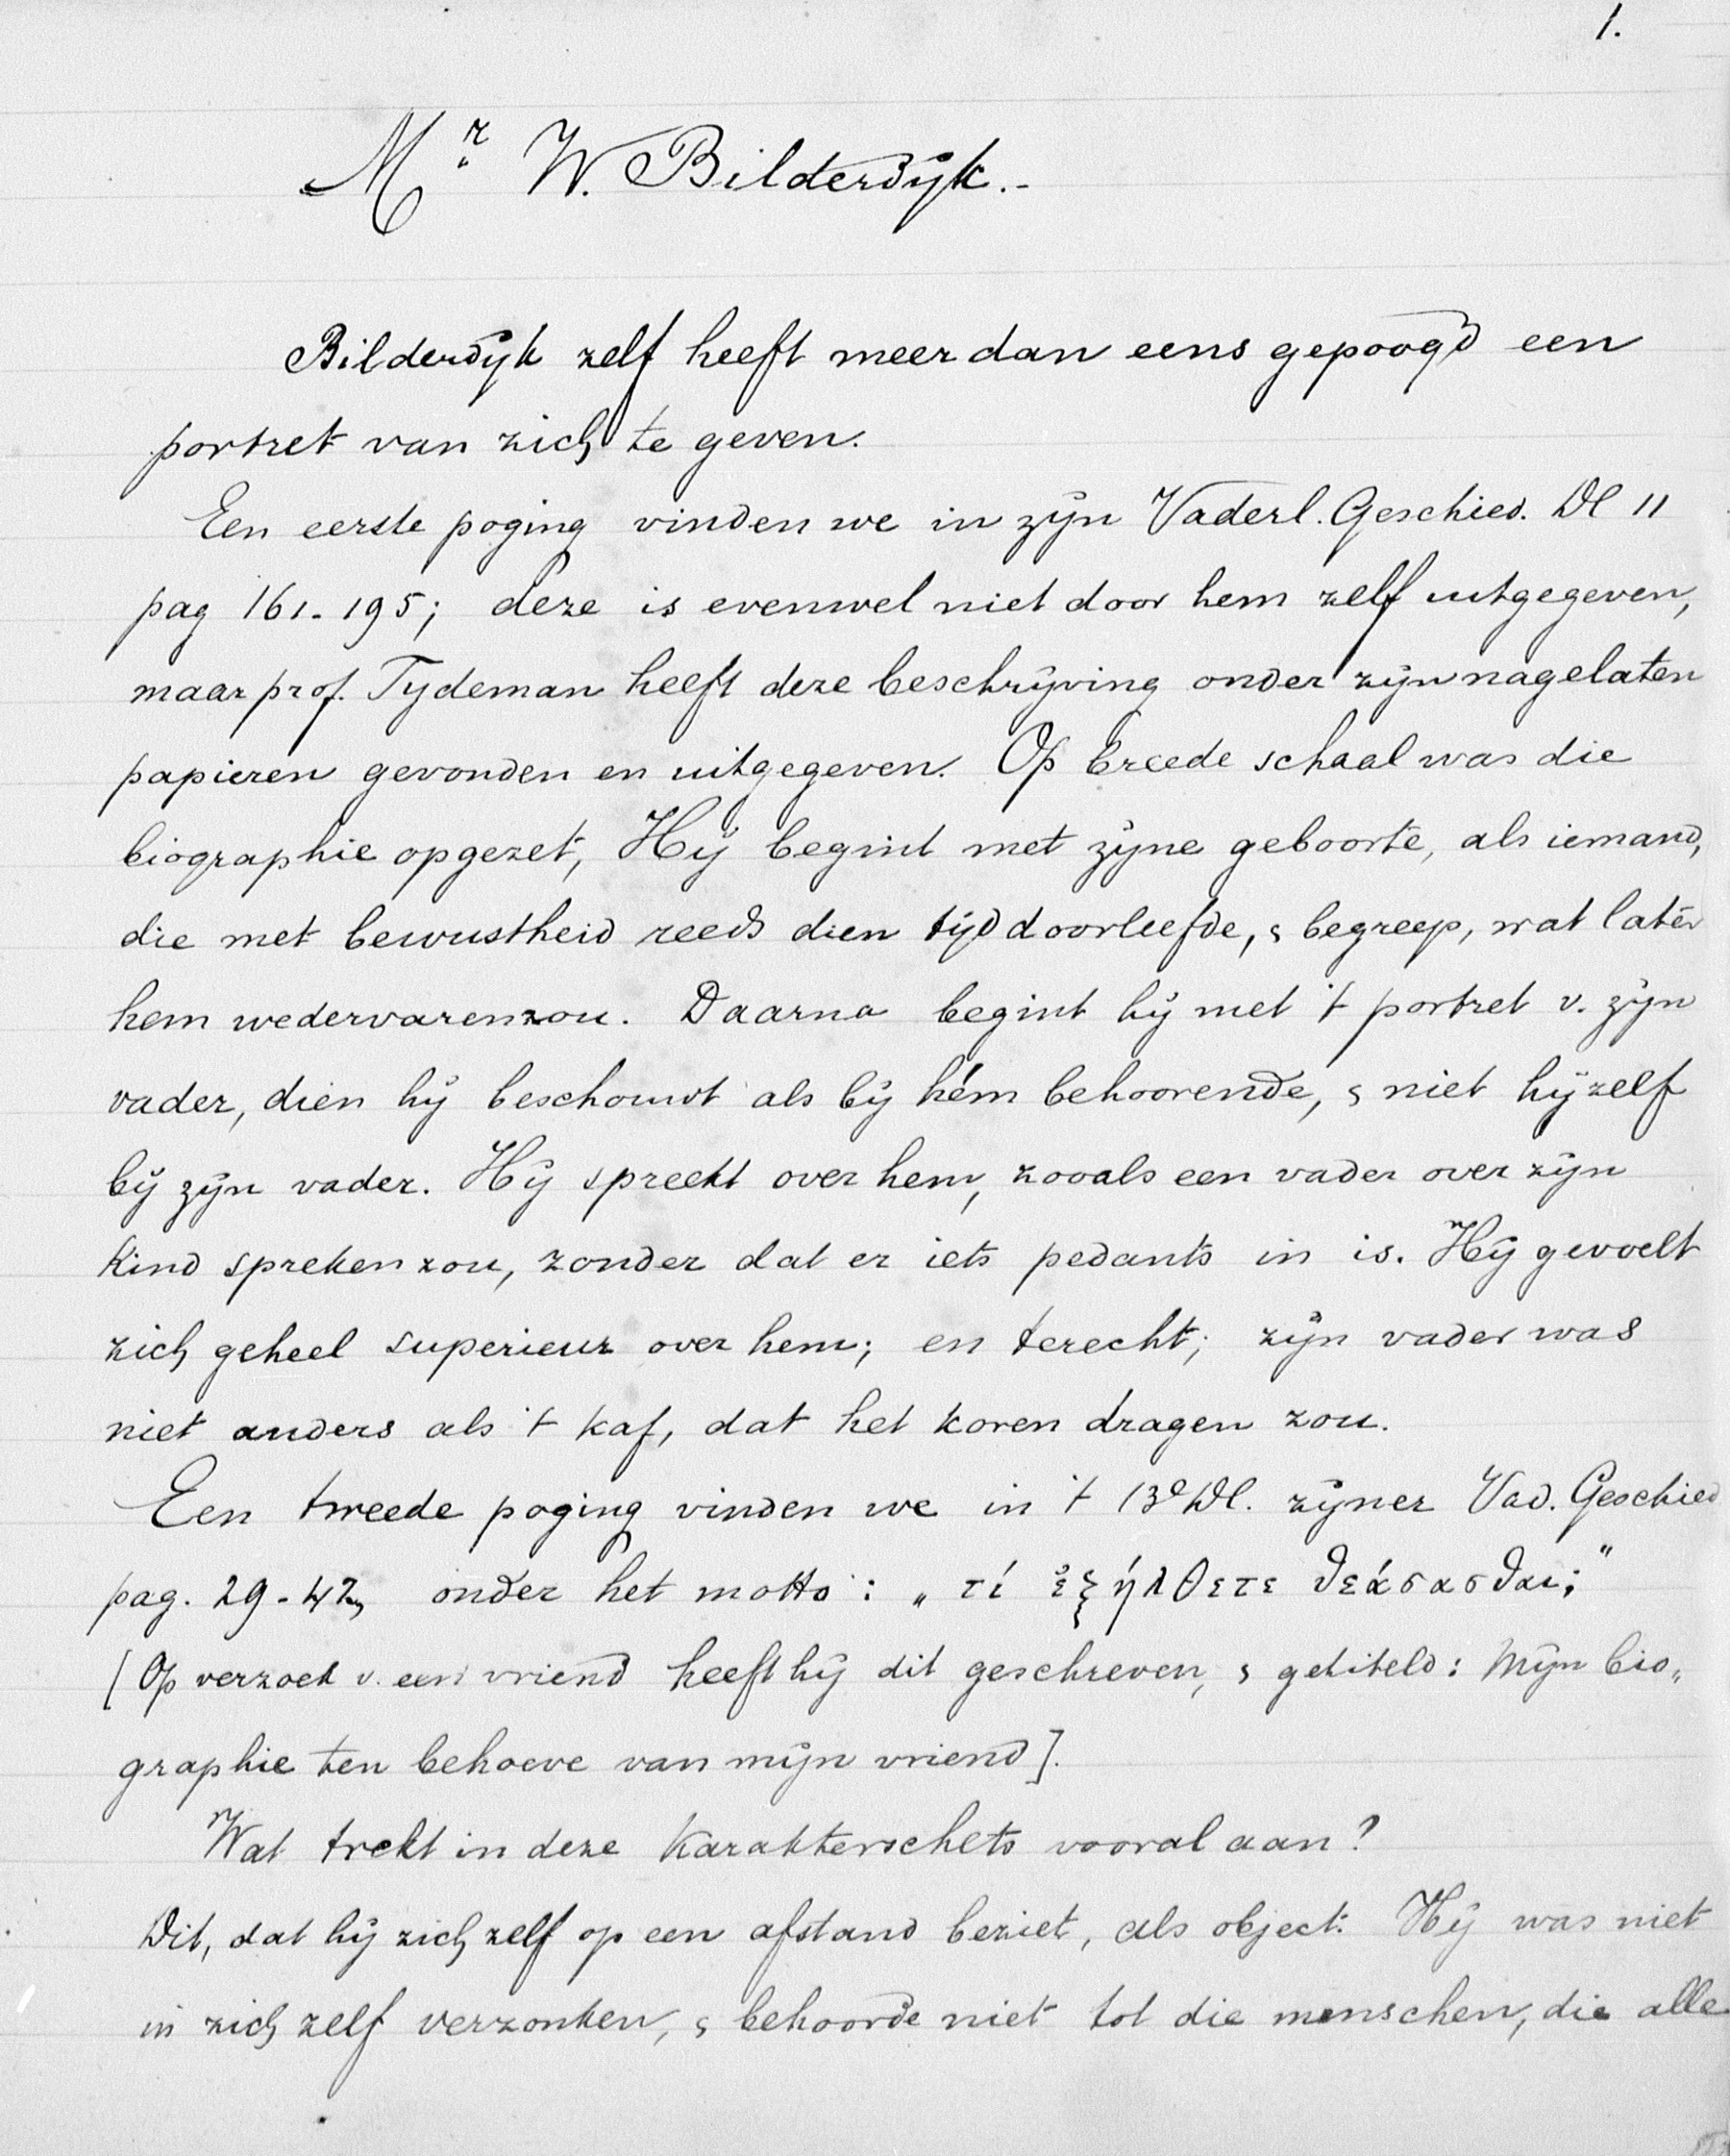 1.
Mr. W. Bilderdijk.-
Bilderdijk zelf heeft meer dan eens gepoogd een
portret van zich te geven.
Een eerste poging vinden we in zijn Vaderl. Geschied. Dl 11
pag 161-195; deze is evenwel niet door hem zelf uitgegeven,
maar prof. Tydeman heeft deze beschrijving onder zijn nagelaten
papieren gevonden en uitgegeven. Op breede schaal was die
biographie opgezet, Hij begint met zijne geboorte, als iemand,
die met bewustheid reeds dien tijd doorleefde, & begreep, wat later
hem wedervaren zou. Daarna begint hij met 't portret v. zijn
vader, dien hij beschouwt als bij hém behoorende, & niet hijzelf
bij zijn vader. Hij spreekt over hem, zooals een vader over zijn
kind spreken zou, zonder dat er iets pedants in is. Hij gevoelt
zich geheel superieur over hem; en terecht; zijn vader was
niet anders als 't kaf, dat het koren dragen zou.
Een tweede poging vinden we in 't 13e Dl. zijner Vad. Geschied
pag. 29-42, onder het motto: „τί ἐξήλθετε θεάσασθαι;"
[Op verzoek v. een vriend heeft hij dit geschreven, & getiteld: Mijn bio„
graphie ten behoeve van mijn vriend].
Wat trekt in deze karakterschets vooral aan?
Dit, dat hij zich zelf op een afstand beziet, als object. Hij was niet
in zich zelf verzonken, & behoorde niet tot die menschen, die alle